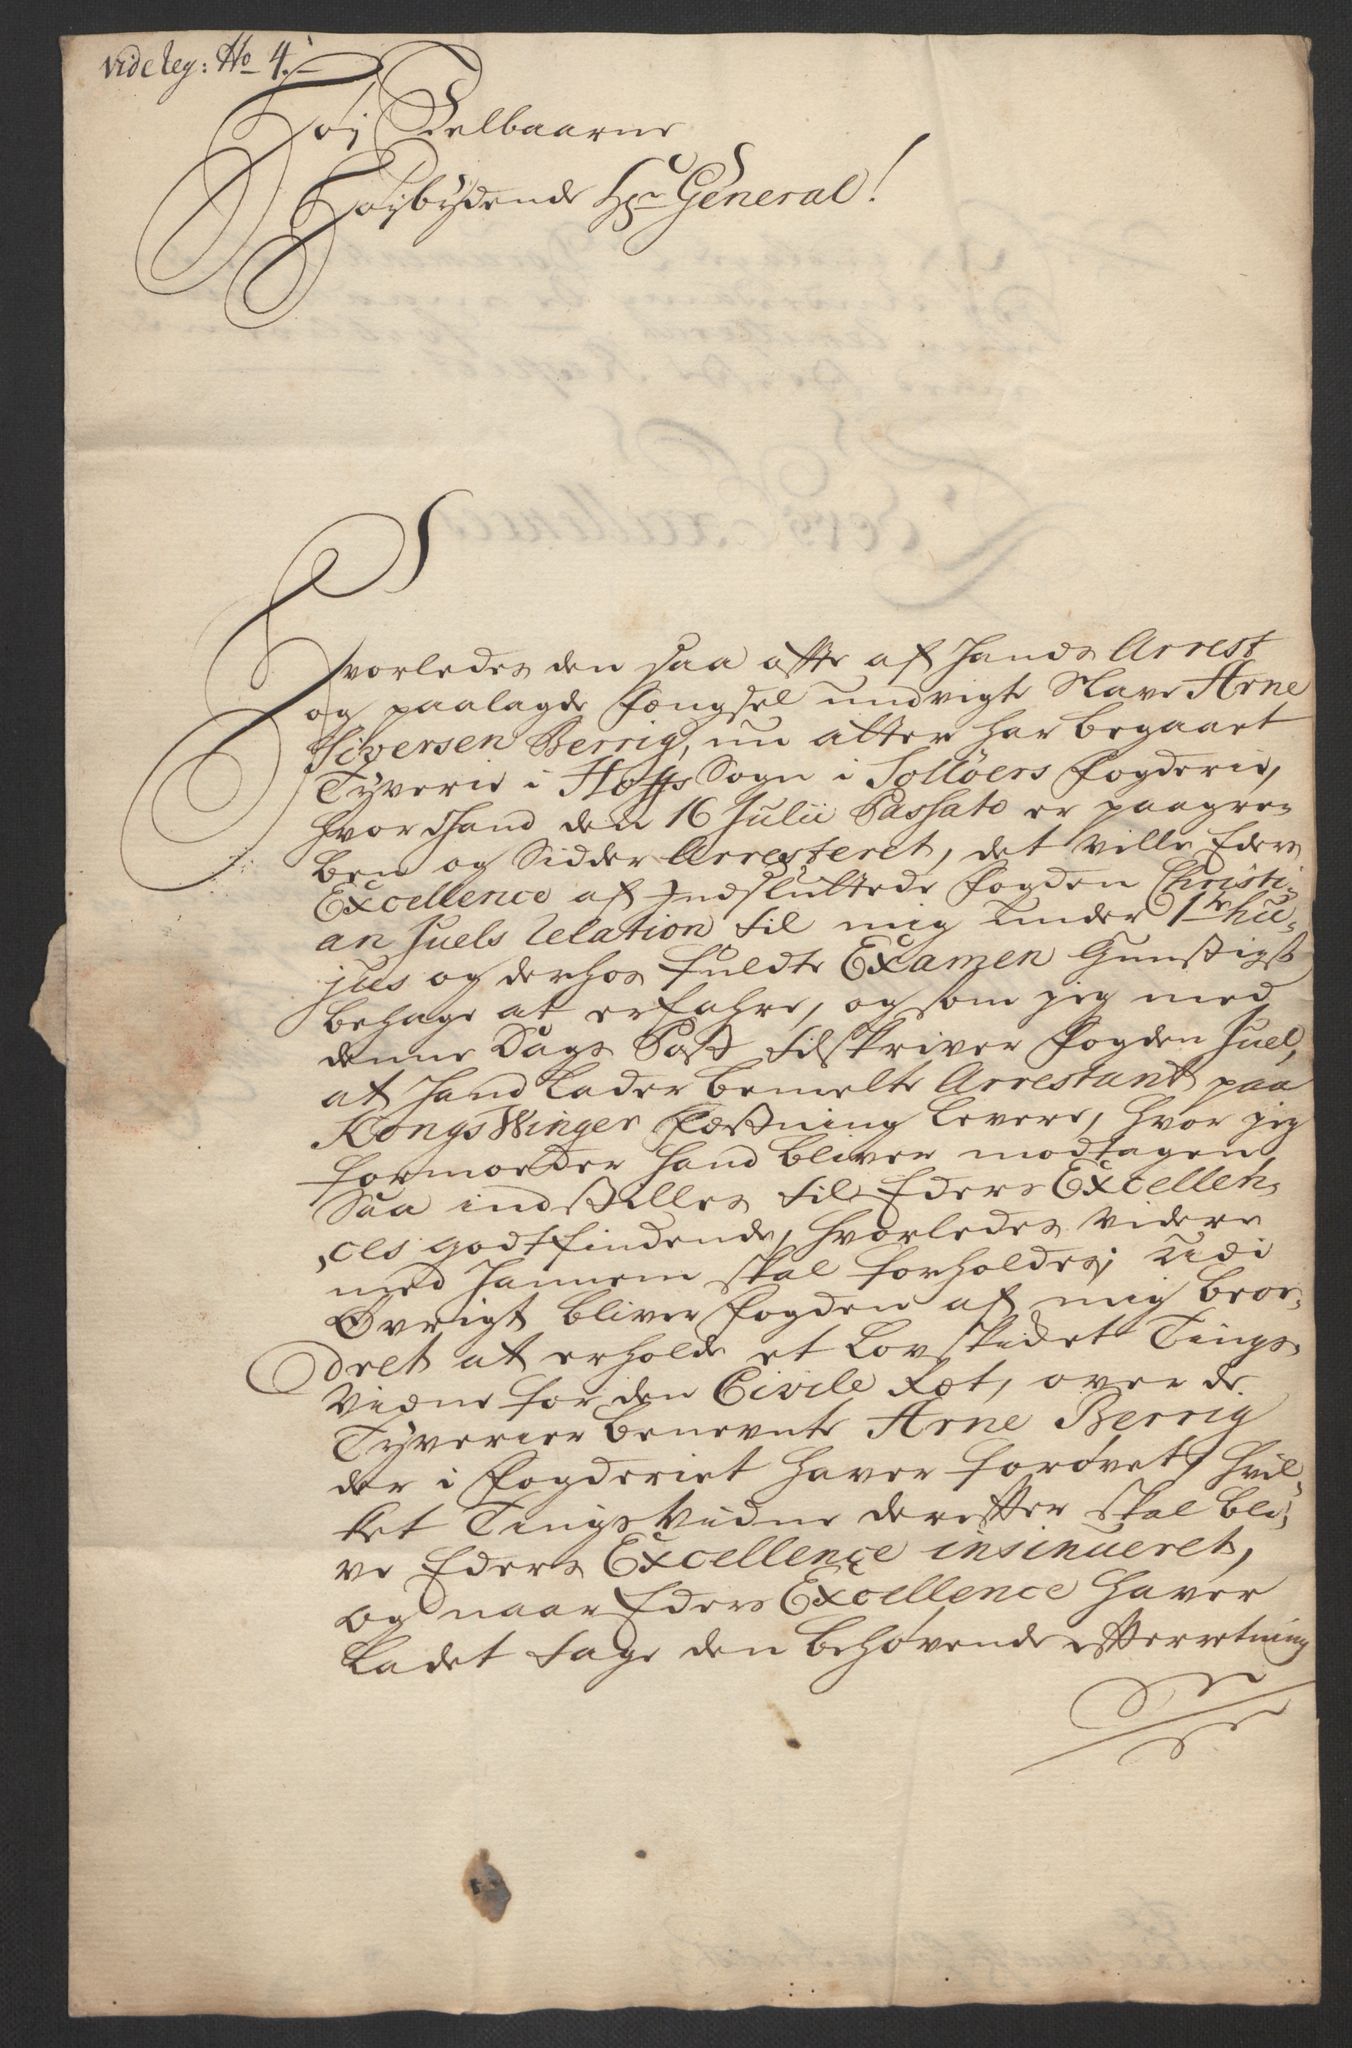 vide reg: No 4.
Høj Edelbaarne
Høybydende Hr General!
Hvorledes den saa offte af hands Arrest
og paalagde Fængsel undvigte Slave Arne
Siversen Berrig, nu atter har begaaet
Tyverie i Hoffs Sogn i Solløers Fogderie,
hvor hand den 16 Julii Passato er paagre-
ben og Sidder Arresteret, det ville Eders
Excellence af Indsluttede Fogden Christi-
an Juels Relation til mig under 1te hu-
jus og derhos fuldte Examen Gunstigst
behage at erfahre, og som jeg med
denne Dags Post tilskriver Fogden Juel,
at hand lader bemelte Arrestant paa
KongsWinger Fæstning levere, hvor jeg
formoeder hand bliver modtagen
Saa indstilles til Eders Excellen-
ces godtfindende, hvorledes videre
med hannem skal forholdes; Udi
Øvrigt bliver Fogden af mig beor-
dret at erholde et lovskidket Tings-
Vidne for den Civile Ræt, over de
Tyverier benevnte Arne Berrig
der i Fogderiet haver forøvet, hvil-
ket Tings Vidne derefter skal bli-
ve Eders Excellence insinueret,
og naar Eders Excellence haver
ladet tage den behøvende efterretning